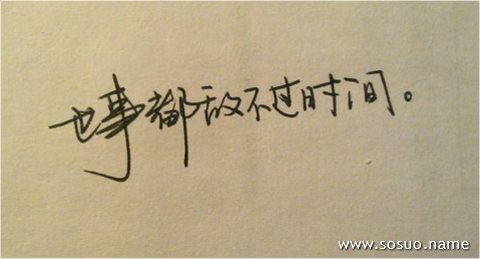 世事都敌不过时间。
www.sosuo.name